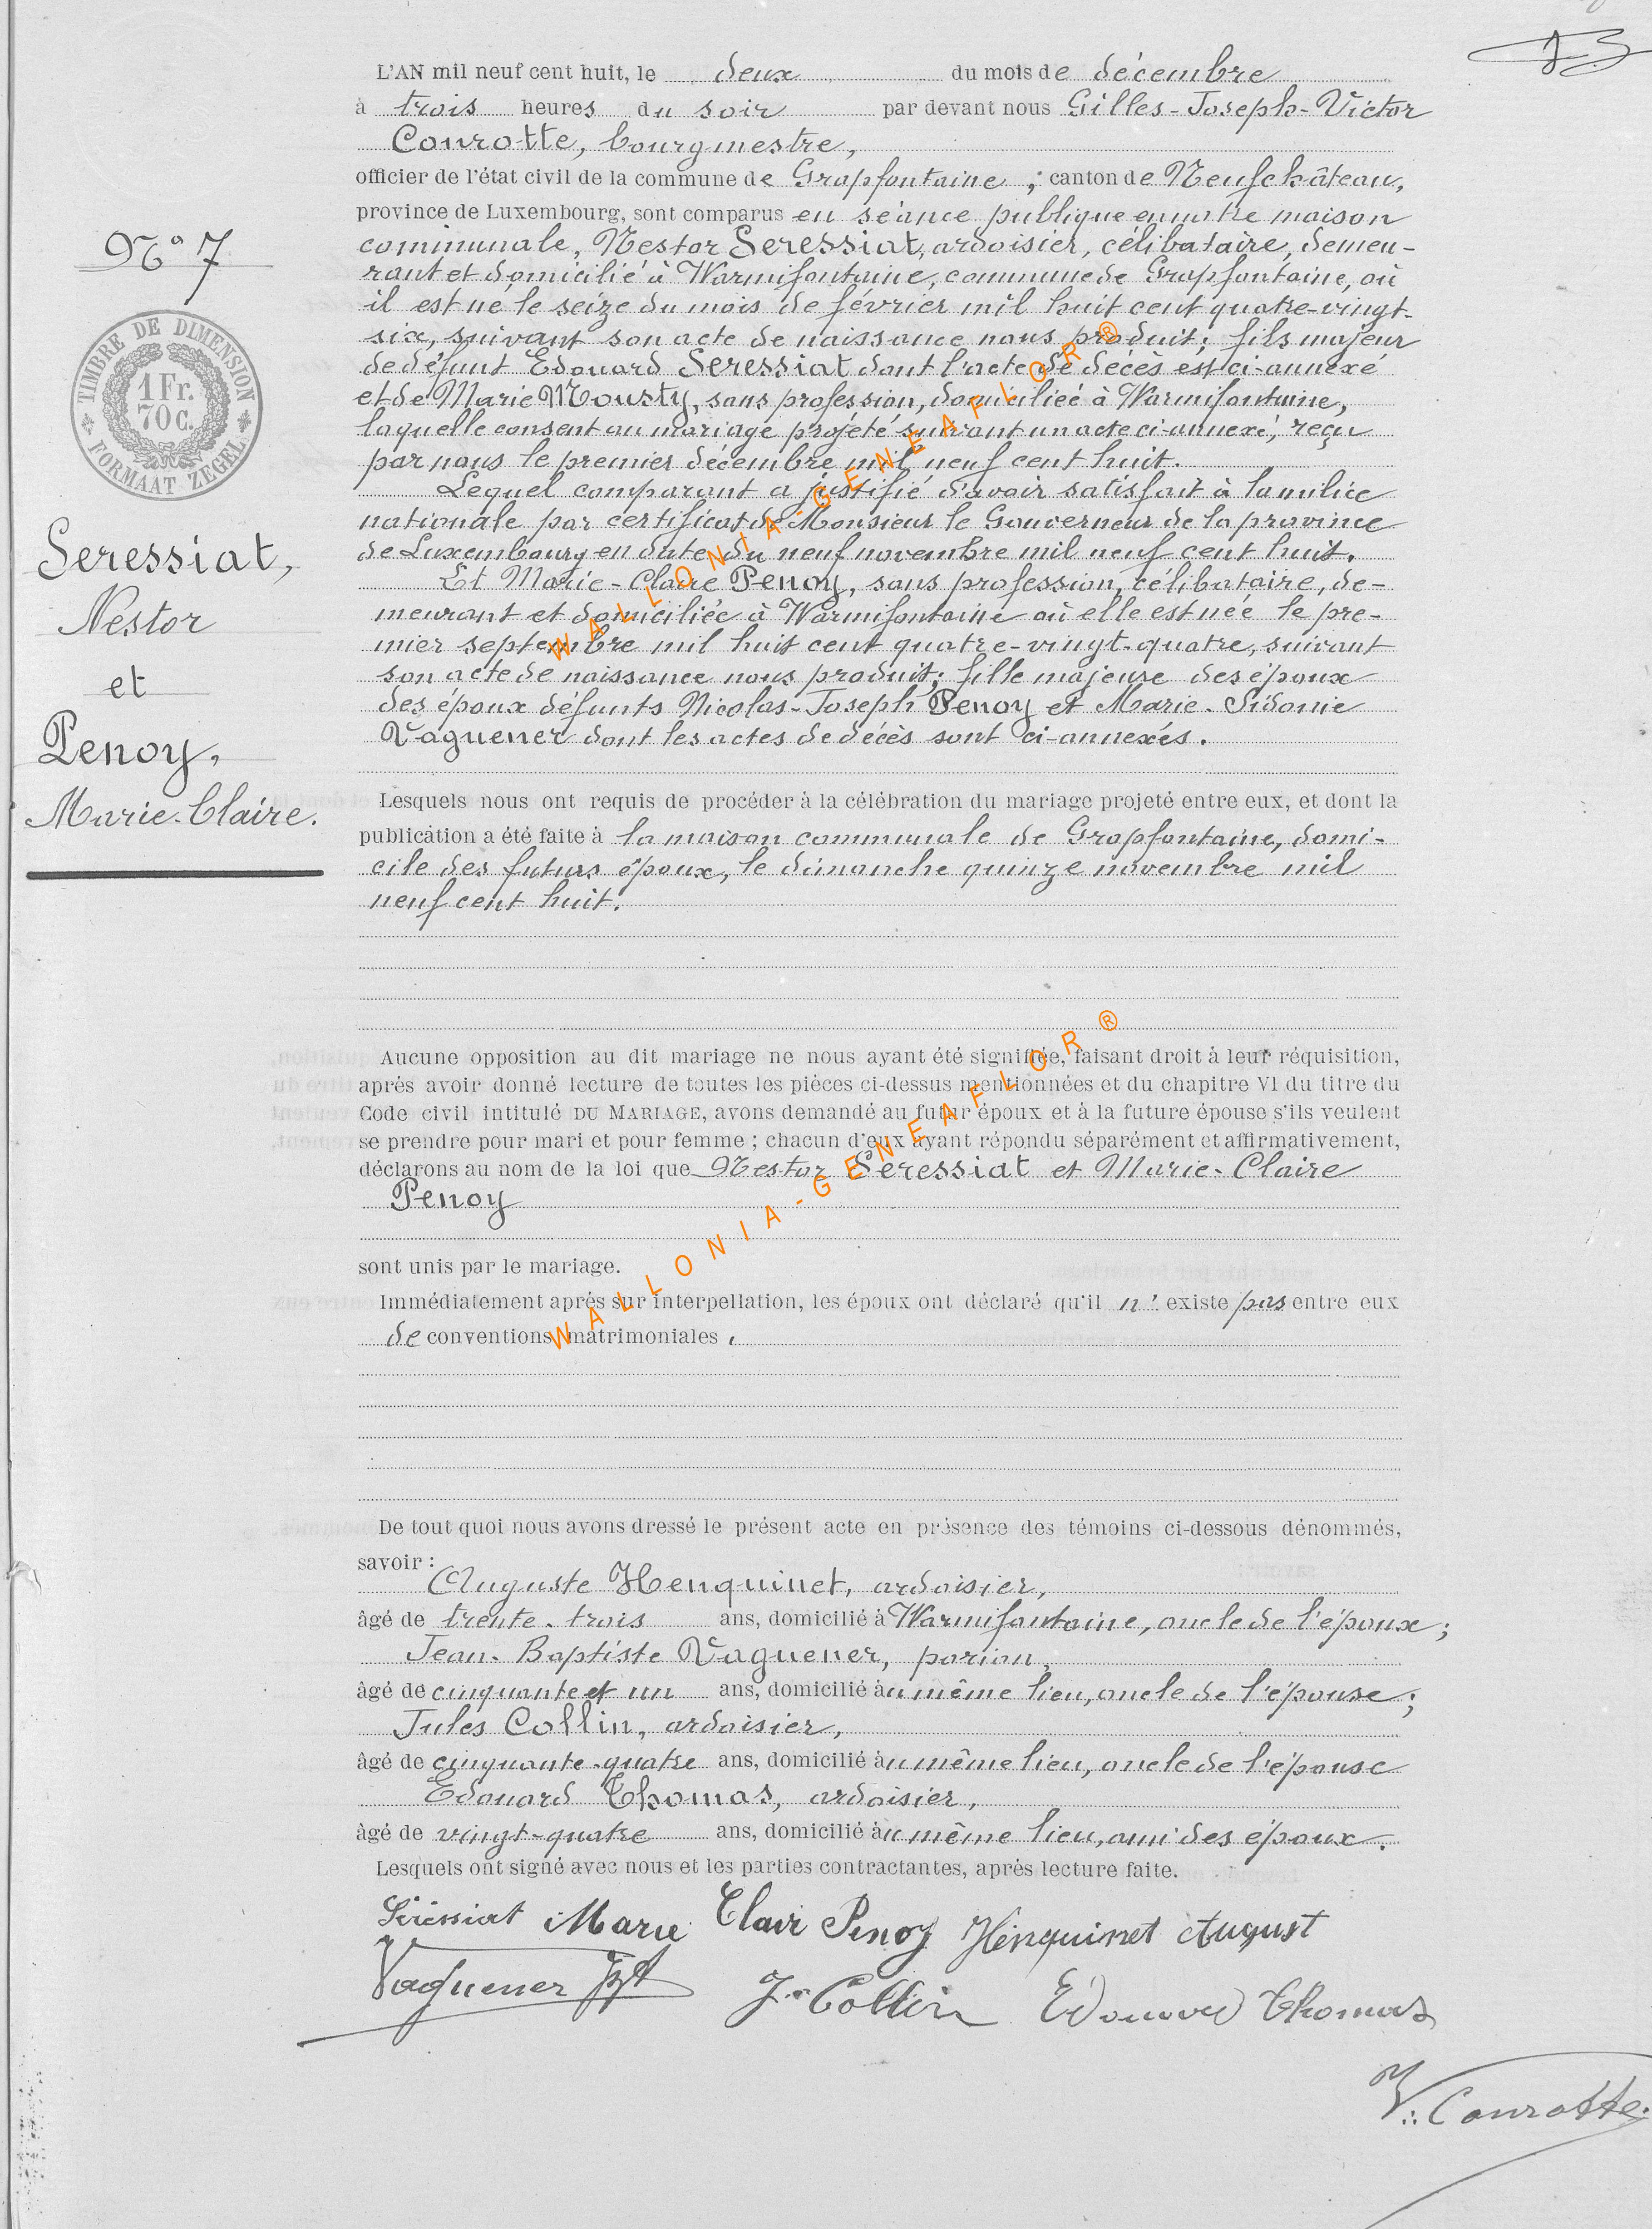 L'AN mil neuf cent huit, le deux du mois de décembre
à trois heures du soir par devant nous Gilles-Joseph-Victor
Conrotte, bourgmestre,
officier de l'état civil de la commune de Grapfontaine, canton de Neufchâteau,
province de Luxembourg, sont comparus en séance publique en notre maison
communale, Nestor Seressiat, ardoisier, célibataire, demeu-
rant et domicilié à Warmifontaine, commune de Grapfontaine, où
il est né le seize du mois de février mil huit cent quatre-vingt-
six, suivant son acte de naissance nous produit; fils majeur
de défunt Edouard Seressiat dont l'acte de décès est ci-annexé
et de Marie Mousty, sans profession, domiciliée à Warmifontaine,
laquelle consent au mariage projeté suivant un acte ci-annexé, reçu
par nous le premier décembre mil neuf cent huit.
Lequel comparant a justifié d'avoir satisfait à la milice
nationale par certificat de Monsieur le Gouverneur de la province
de Luxembourg en date du neuf novembre mil neuf cent huit.
Et Marie-Claire Penoy, sans profession, célibataire, de-
meurant et domiciliée à Warmifontaine où elle est née le pre-
mier septembre mil huit cent quatre-vingt-quatre, suivant
son acte de naissance nous produit; fille majeure des époux
des époux défunts Nicolas-Joseph Penoy et Marie-Sidonie
Vaguener dont les actes de décès sont ci-annexés.
N° 7
TIMBRE DE DIMENSION
1 Fr.
70 c.
FORMAAT ZEGEL
Seressiat,
Nestor
et
Penoy,
Marie-Claire.
Lesquels nous ont requis de procéder à la célébration du mariage projeté entre eux, et dont la
publication a été faite à la maison communale de Grapfontaine, domi-
cile des futurs époux, le dimanche quinze novembre mil
neuf cent huit.
Aucune opposition au dit mariage ne nous ayant été signifiée, faisant droit à leur réquisition,
après avoir donné lecture de toutes les pièces ci-dessus mentionnées et du chapitre VI du titre du
Code civil intitulé DU MARIAGE, avons demandé au futur époux et à la future épouse s'ils veulent
se prendre pour mari et pour femme ; chacun d'eux ayant répondu séparément et affirmativement,
déclarons au nom de la loi que Nestor Seressiat et Marie-Claire
Penoy
sont unis par le mariage.
Immédiatement après sur interpellation, les époux ont déclaré qu'il n'existe pas entre eux
de conventions matrimoniales.
De tout quoi nous avons dressé le présent acte en présence des témoins ci-dessous dénommés,
savoir :
Auguste Henquinet, ardoisier,
âgé de trente-trois ans, domicilié à Warmifontaine, oncle de l'époux;
Jean-Baptiste Vaguener, porion,
âgé de cinquante et un ans, domicilié au même lieu, oncle de l'épouse;
Jules Collin, ardoisier,
âgé de cinquante-quatre ans, domicilié au même lieu, oncle de l'épouse
Edouard Thomas, ardoisier,
âgé de vingt-quatre ans, domicilié au même lieu, ami des époux.
Lesquels ont signé avec nous et les parties contractantes, après lecture faite.
Séressiat Marie Clair Penoy Henquinet August
Vaguener JBt J. Collin Edouard Thomas
V. Conrotte.
WALLONIA-GENEAFLOR®
WALLONIA-GENEAFLOR®